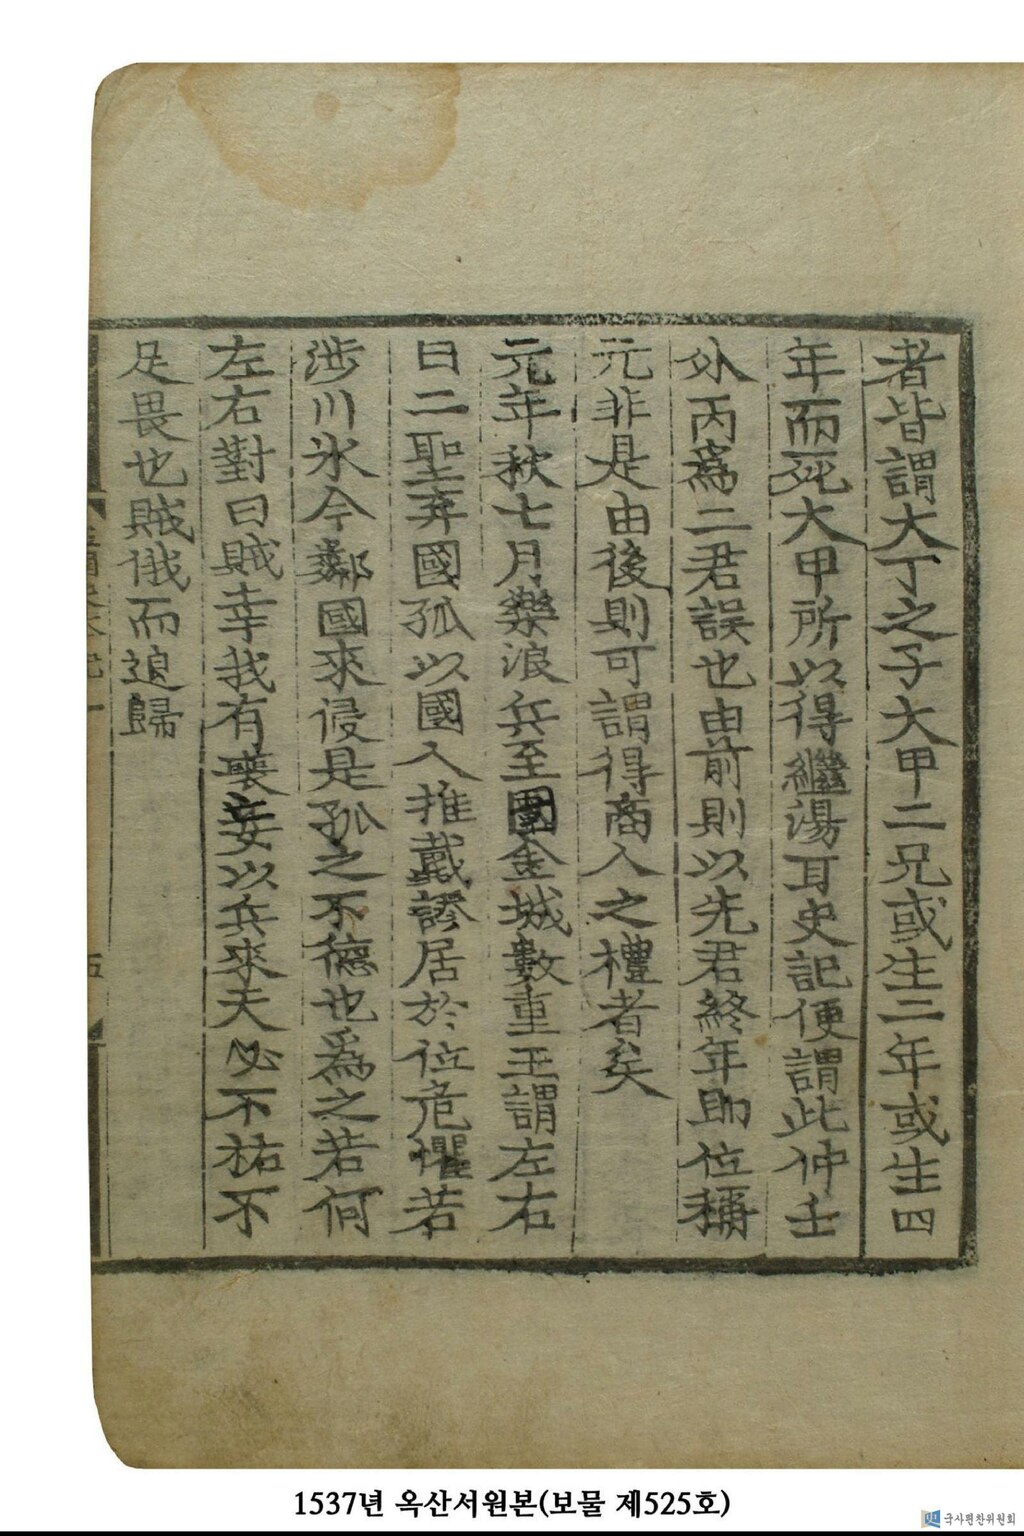 者皆謂大丁之子大甲二兄或生二年或生四
年而死大甲所以得繼湯耳史記便謂此仲壬
外丙爲二君誤也由前則以先君終年即位稱
元非是由後則可謂得商人之禮者矣
元年秋七月樂浪兵至圍金城數重王謂左右
曰二聖弃國孤以國人推戴謬居於位危懼若
涉川氷今鄰國來侵是孤之不德也爲之若何
左右對曰賊幸我有喪妄以兵來天必不祐不
足畏也賊俄而退歸
1537년 옥산서원본(보물 제525호)
국사편찬위원회